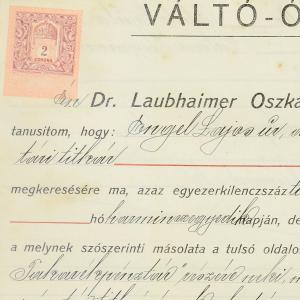 VÁLTÓ-Ó
2
KORONA
Én Dr. Laubhaimer Oszká
tanusitom, hogy: Engel Lajos úr,
tári titkár
megkeresésére ma, azaz egyezerkilencszáz
hó harminczegyedik napján, de
a melynek szószerinti másolata a tulsó oldalo
Takarékpénztár" részv